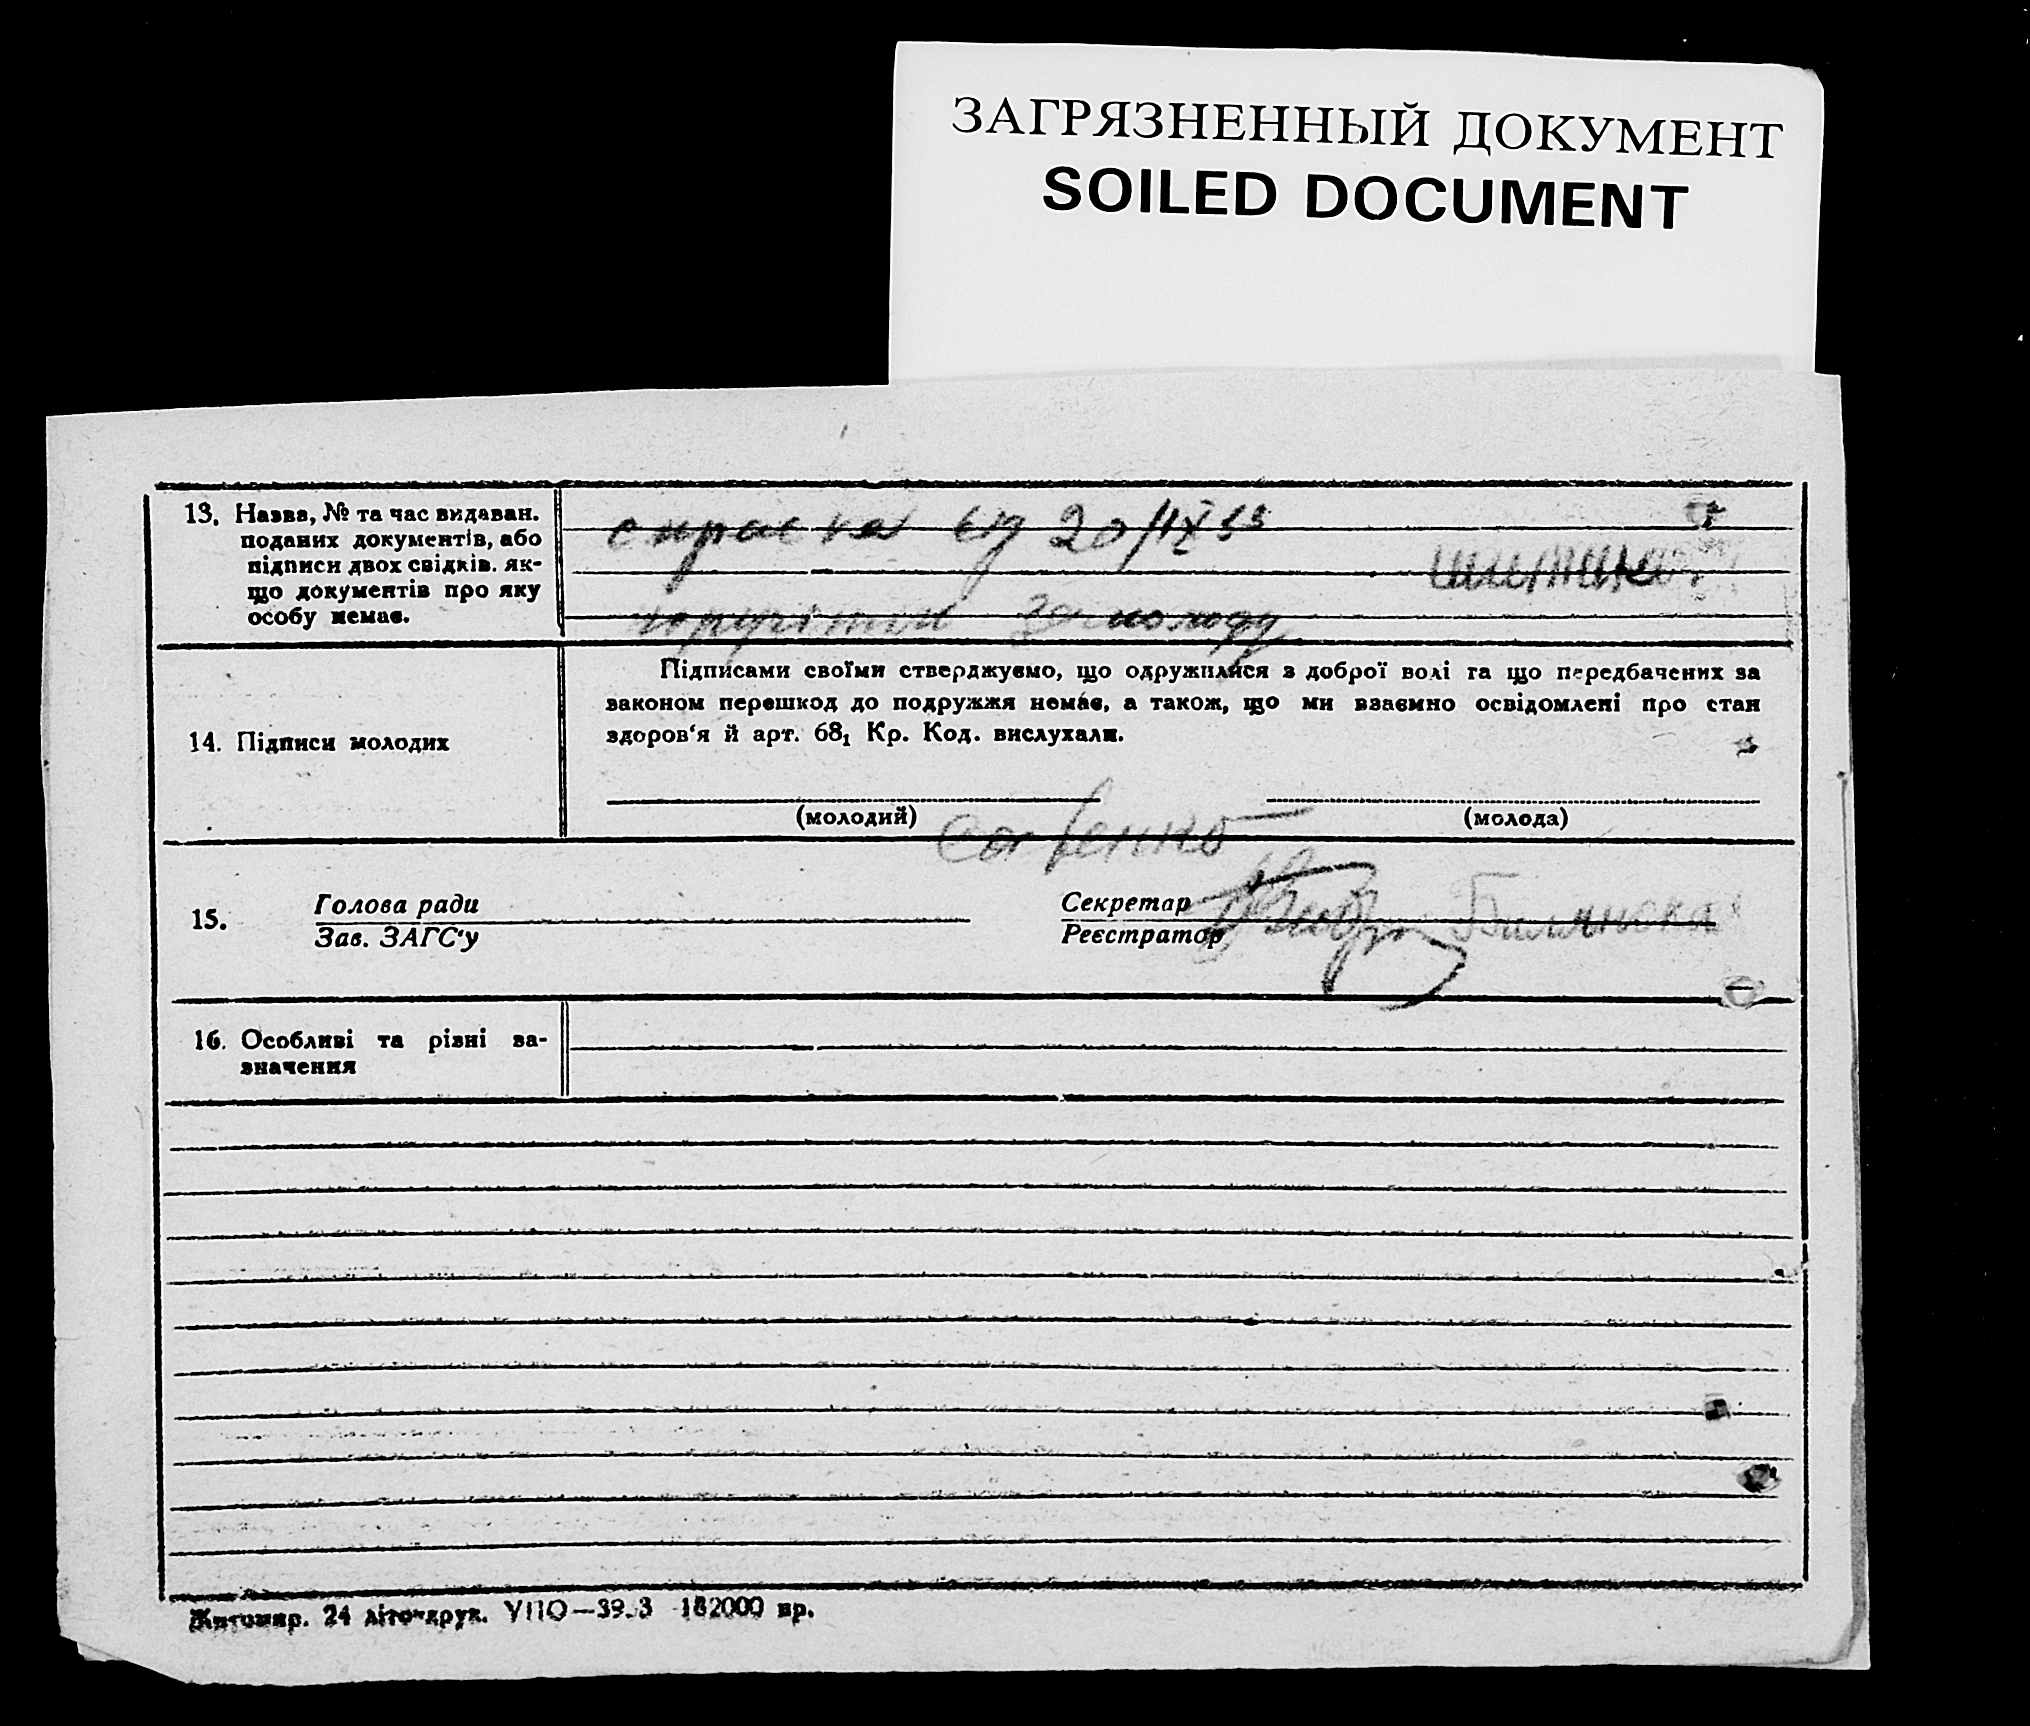 ЗАГРЯЗНЕННЫЙ ДОКУМЕНТ
SOILED DOCUMENT
13. Назва, № та час видаван.
поданих документів, або
підписи двох свідків. як-
що документів про яку
особу немає.
від 20/IX 33
за молоду
14. Підписи молодих
Підписами своїми стверджуємо, що одружилися з доброї волі та що передбачених за
законом перешкод до подружжя немає, а також, що ми взаємно освідомлені про стан
здоров'я й арт. 68₁ Кр. Код. вислухали.
(молодий)
(молода)
Савенко
15.
Голова ради
Зав. ЗАГС'у
Секретар
Реєстратор
Билинская
16. Особливі та рівні за-
значення
Житомир. 24 літо-друк. УПО—39.3 162000 пр.